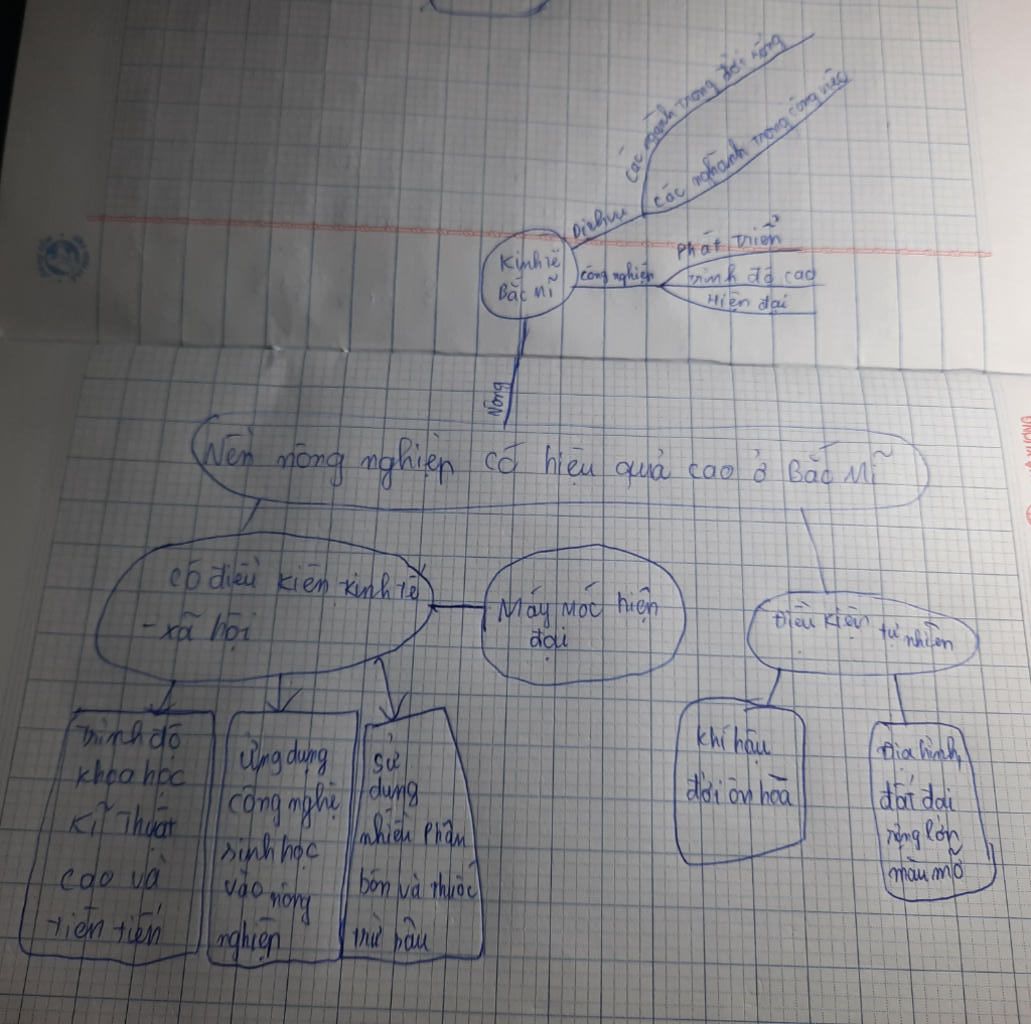 Các ngành trong đời sống
các nghành trong công nghiệp
Dịch vụ
Kinh tế
Bắc Mĩ
công nghiệp
phát triển
trình độ cao
Hiện đại
Nông
Nền nông nghiệp có hiệu quả cao ở Bắc Mĩ
có điều kiện kinh tế
- xã hội
Máy móc hiện
đại
Điều kiện tự nhiên
trình độ
khoa học
kĩ thuật
cao và
tiên tiến
ứng dụng
công nghệ
sinh học
vào nông
nghiệp
sử
dụng
nhiều phân
bón và thuốc
trừ sâu
khí hậu
đới ôn hòa
Địa hình
đất đai
rộng lớn
màu mỡ